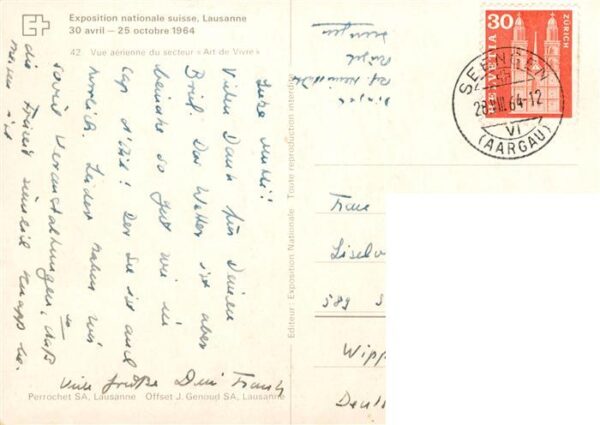 Exposition nationale suisse, Lausanne
30 avril — 25 octobre 1964
42 Vue aérienne du secteur « Art de Vivre »
Liebe Mutti!
Vielen Dank für Deinen
Brief. Das Wetter ist aber
beinahe so gut wie in
Der See ist auch
herrlich. Leider haben wir
soviel Veranstaltungen, daß
die Freizeit ziemlich knapp be-
messen ist
Viele Grüße Dein Frank
Perrochet SA, Lausanne Offset J. Genoud SA, Lausanne
Editeur: Exposition Nationale Toute reproduction interdite
30
HELVETIA
ZÜRICH
SEENGEN
28.VII.64-12
VI
(AARGAU)
Frau
589
Wipp
Deut